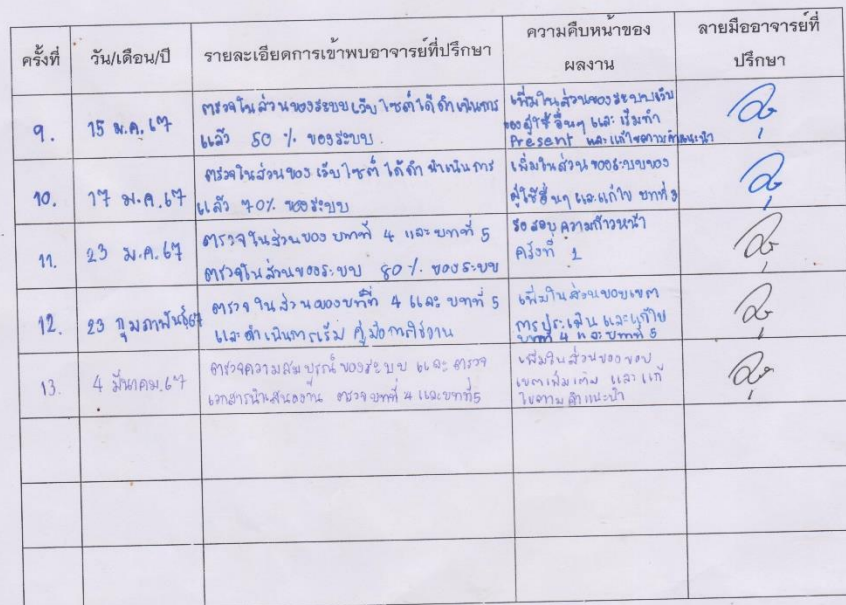 ครั้งที่ วัน/เดือน/ปี รายละเอียดการเข้าพบอาจารย์ที่ปรึกษา ความคืบหน้าของผลงาน ลายมืออาจารย์ที่ปรึกษา
9. 15 ม.ค. 67
ตรวจในส่วนของระบบเว็บไซต์ได้ดำเนินการ
แล้ว 50 % ของระบบ
เพิ่มในส่วนของระบบเว็บ
ของผู้ใช้อื่นๆ และ เริ่มทำ
Present และแก้ไขตามคำแนะนำ
10. 17 ม.ค. 67
ตรวจในส่วนของ เว็บไซต์ ได้ดำเนินการ
แล้ว 70% ของระบบ
เพิ่มในส่วน ของระบบของ
ผู้ใช้อื่นๆ และแก้ไข บทที่ 3
11. 23 ม.ค. 67
ตรวจในส่วนของ บทที่ 4 และ บทที่ 5
ตรวจในส่วนของระบบ 80 % ของระบบ
รอสอบความก้าวหน้า
ครั้งที่ 1
12. 23 กุมภาพันธ์ 67
ตรวจในส่วนของบทที่ 4 และ บทที่ 5
และดำเนินการเริ่ม คู่มือการใช้งาน
เพิ่มในส่วนขอบเขต
การประเมิน และแก้ไข
บทที่ 4 และบทที่ 5
13. 4 มีนาคม. 67
ตรวจความสมบูรณ์ ของระบบ และ ตรวจ
เอกสารนำเสนองาน ตรวจ บทที่ 4 และบทที่ 5
เพิ่มในส่วนของ ขอบ
เขตเพิ่มเติม และ แก้
ไขตาม คำแนะนำ